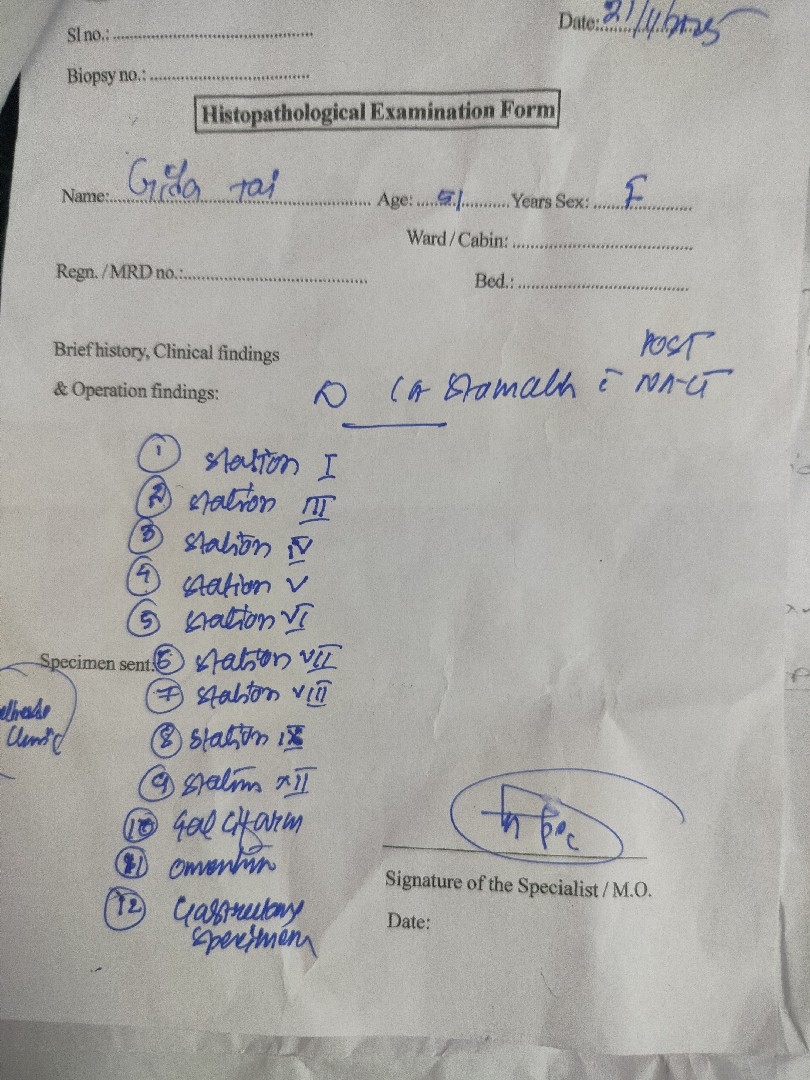 Sl no.:
Date: 21/4/2025
Biopsy no.:
Histopathological Examination Form
Name: Gida rai Age: 51 Years Sex: F
Ward / Cabin:
Regn. / MRD no.:
Bed.:
Brief history, Clinical findings
POST
& Operation findings: CA Stomach c̄ NA-CT
1 Station I
2 Station III
3 Station IV
4 Station V
5 Station VI
Specimen sent: 6 Station VII
7 Station VIII
8 Station IX
Clinic
9 Station XII
10
11 Omentum
12 Gastrectomy
specimen
Signature of the Specialist / M.O.
Date: